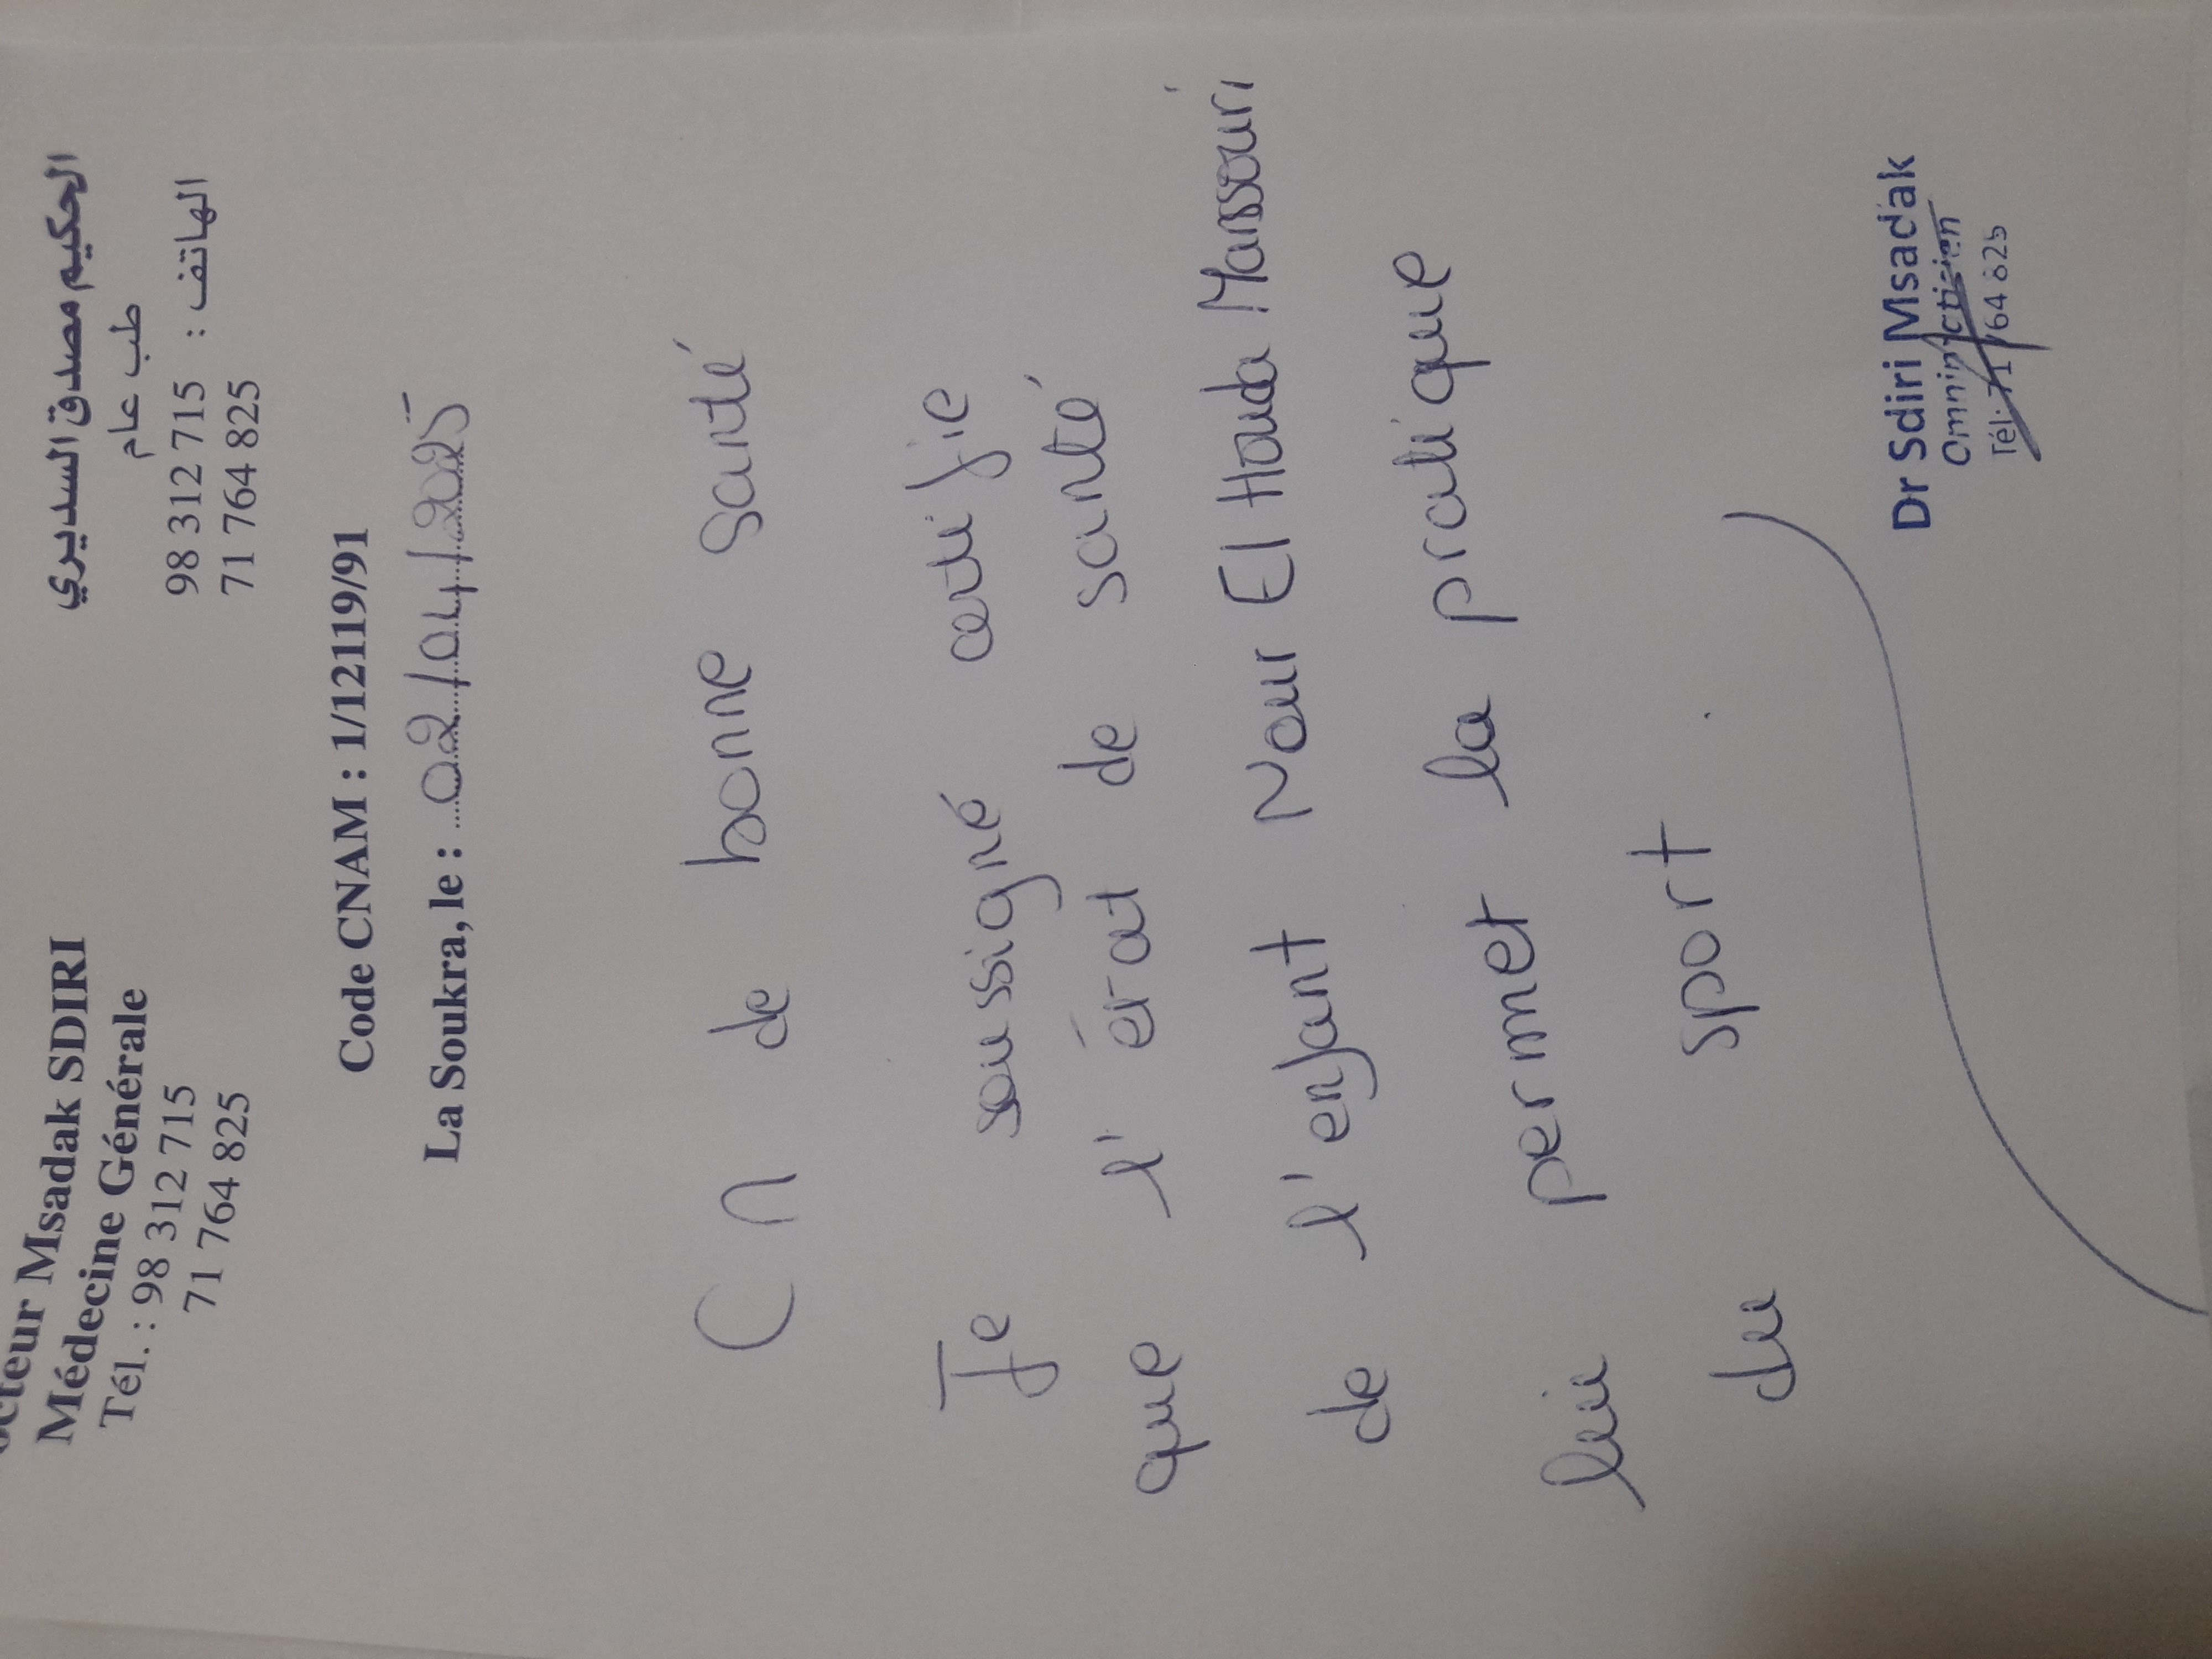 Docteur Msadak SDIRI
Médecine Générale
Tél. : 98 312 715
71 764 825
الحكيم مصدق السديري
طب عام
الهاتف : 98 312 715
71 764 825
Code CNAM : 1/12119/91
La Soukra, le : 02/04/2025
CM de bonne santé
Je soussigné certifie
que l'état de santé
de l'enfant Nour El Houda Manssouri
lui permet la pratique
du sport
Dr Sdiri Msadak
Omnipraticien
Tél: 71 764 825